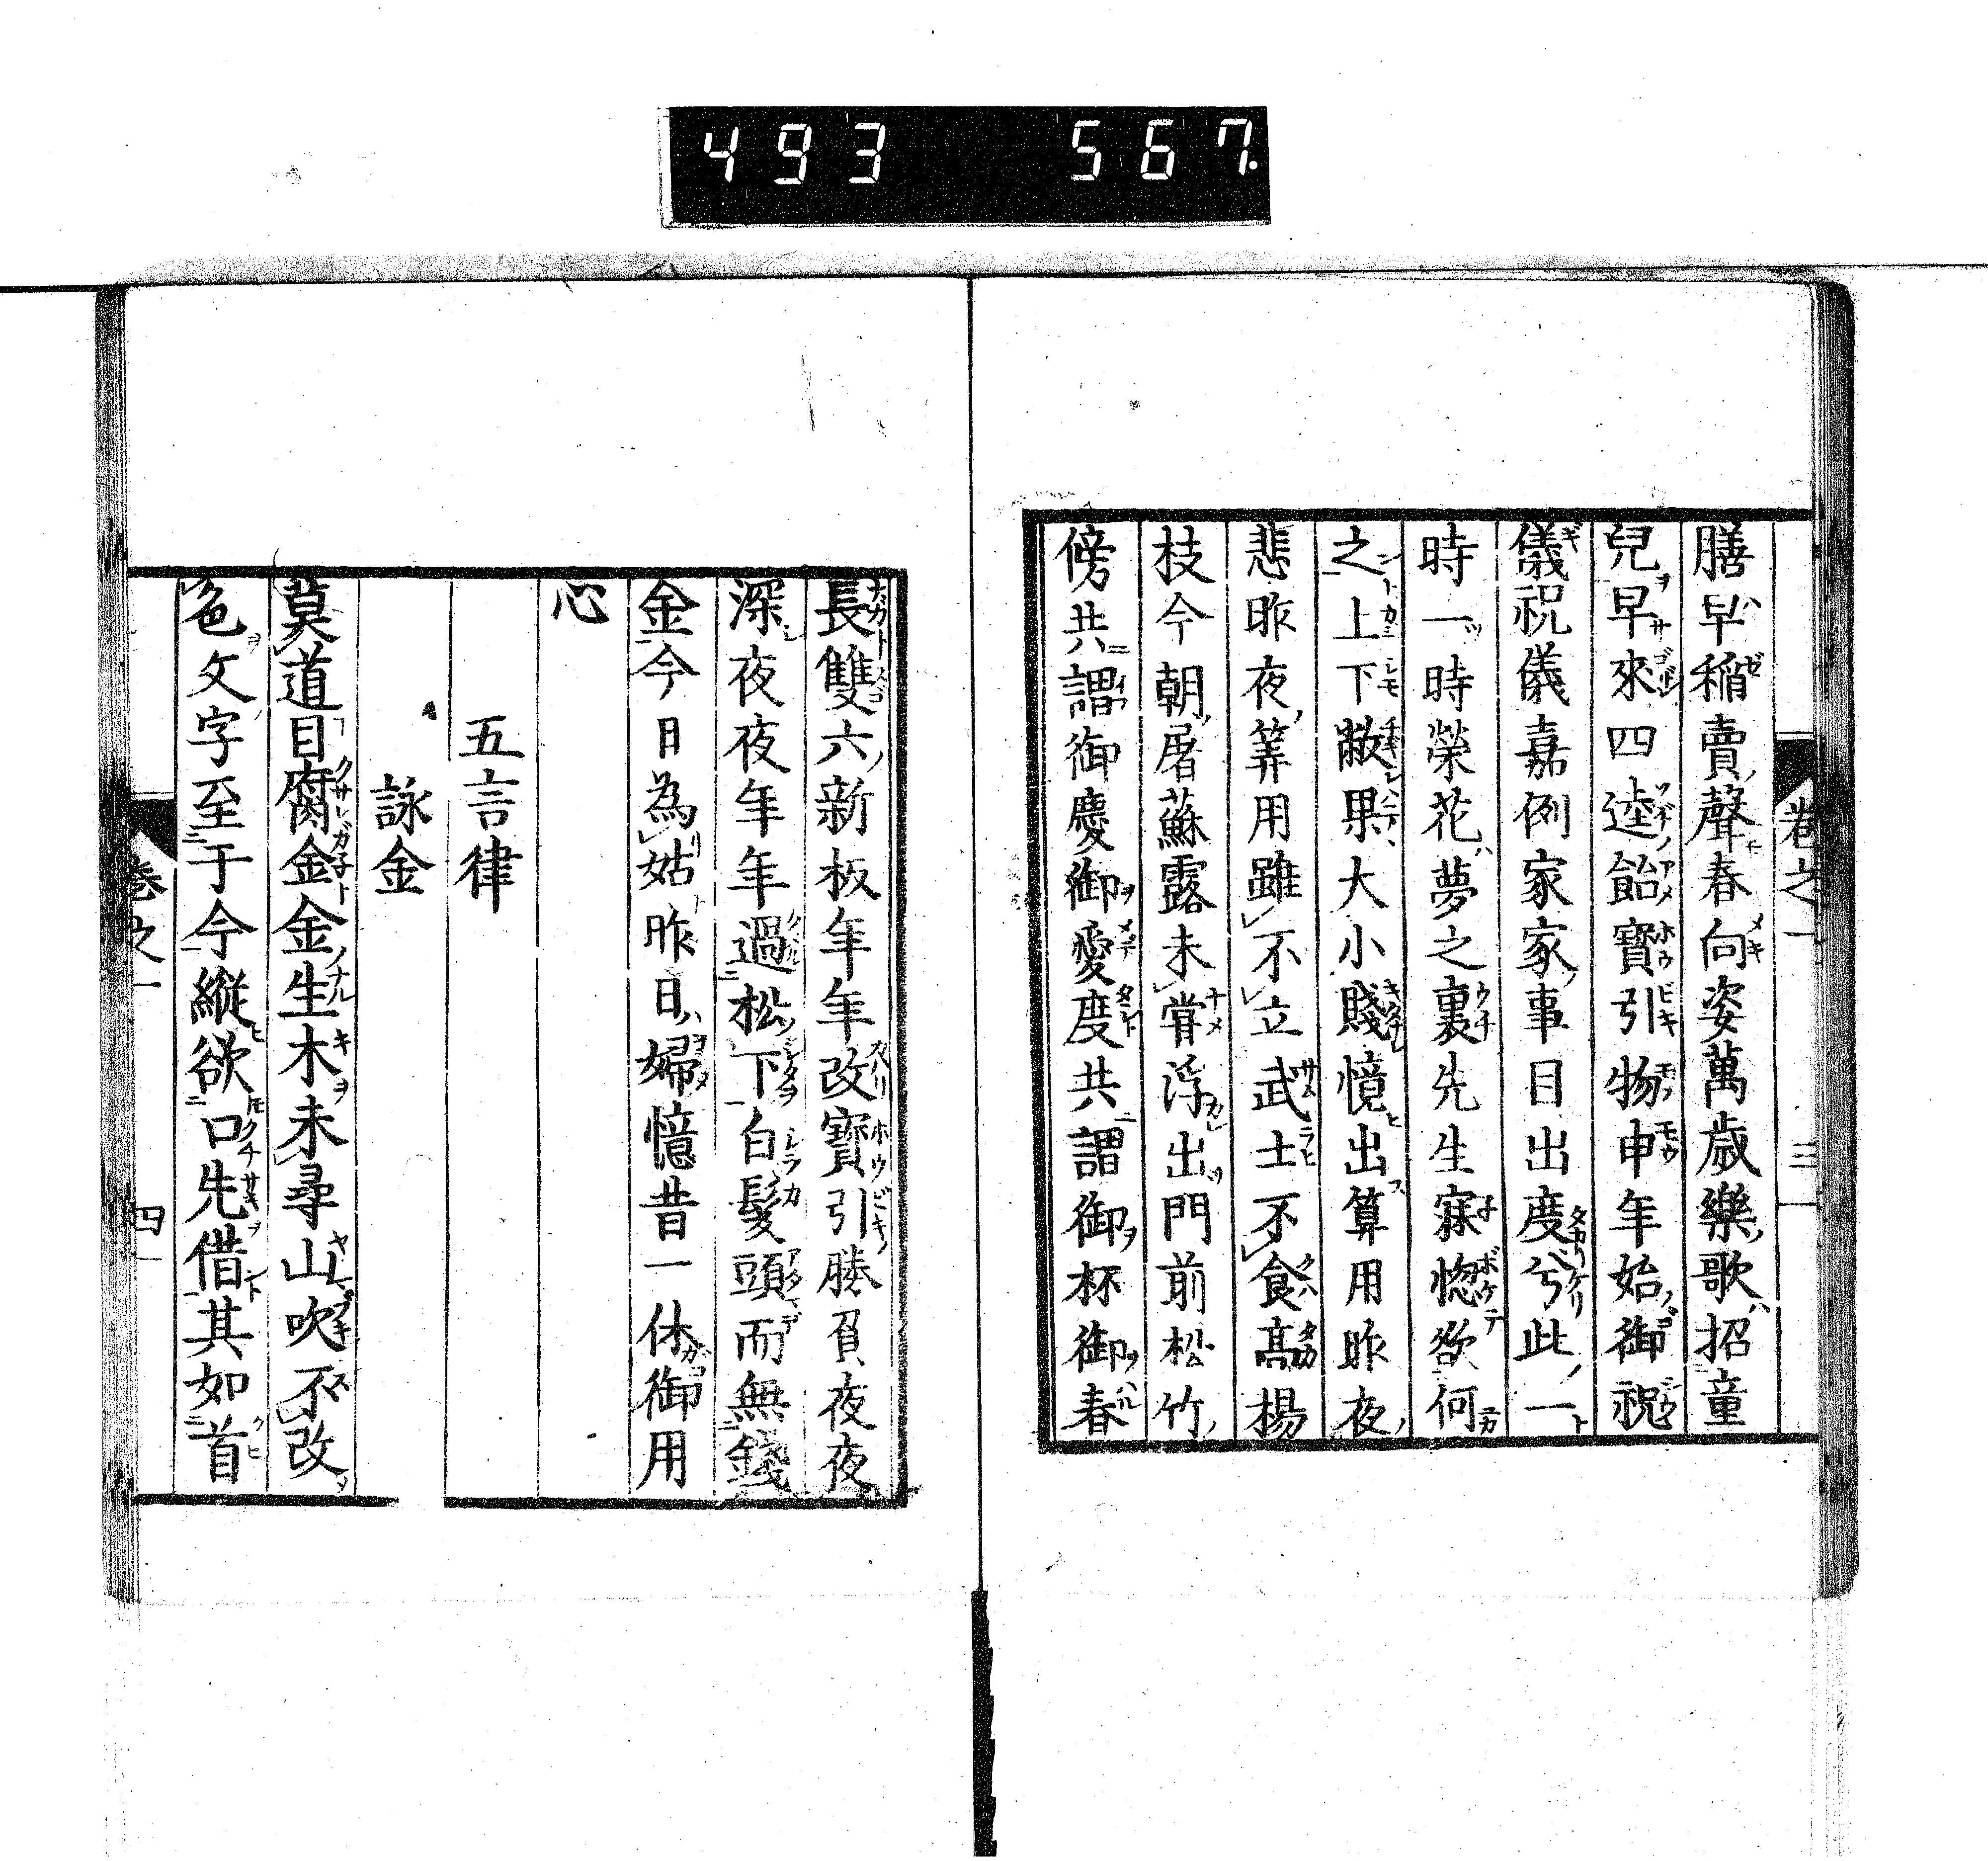 493 567.
卷之一 三
膳早稲賣聲春向姿萬歳樂歌招童
兒早來四逵飴寶引物申年始御祝
儀祝儀嘉例家家事目出度兮此一
時一時榮花夢之裏先生寐惚欲何
之上下敝果大小賤憶出算用昨夜
悲昨夜筭用雖不立武士不食高楊
枝今朝屠蘇露未嘗浮出門前松竹
傍共謂御慶御愛度共謂御杯御春
長雙六新板年年改寶引勝負夜夜
深夜夜年年過松下白髮頭而無錢
金今日為姑昨日婦憶昔一休御用
心
五言律
詠金
莫道目腐金金生木未尋山吹不改
色文字至于今縱欲口先借其如首
卷之一 四